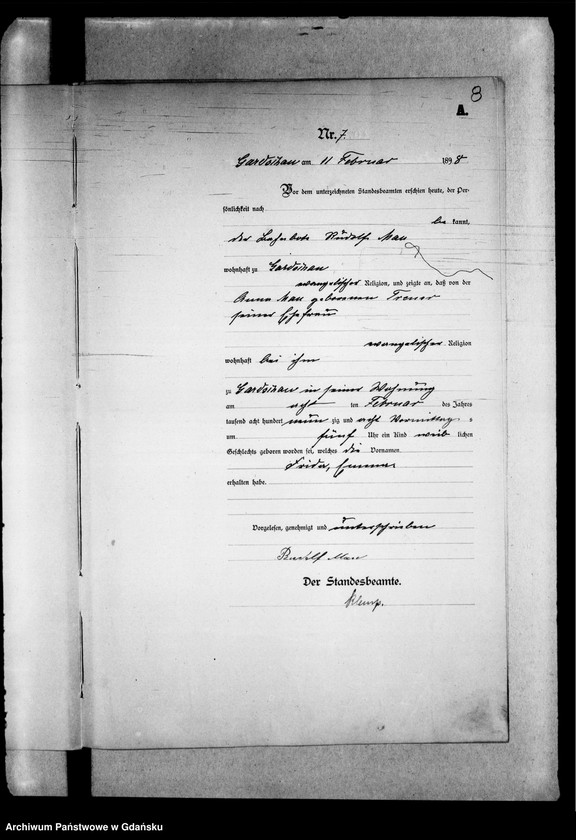 8
A.
Nr. 7.
Gardschau am 11 Februar 1898
Vor dem unterzeichneten Standesbeamten erschien heute, der Per-
sönlichkeit nach
be kannt,
der Rudolf Mau
wohnhaft zu Gardschau
evangelischer Religion, und zeigte an, daß von der
Anna Mau geborenen
seiner Ehefrau
evangelischer Religion
wohnhaft bei ihm
zu Gardschau in seiner Wohnung
am acht ten Februar des Jahres
tausend acht hundert neun zig und acht Vormittags
um fünf Uhr ein Kind weib lichen
Geschlechts geboren worden sei, welches die Vornamen
Frida, Emma
erhalten habe.
Vorgelesen, genehmigt und unterschrieben
Rudolf Mau
Der Standesbeamte.
Archiwum Państwowe w Gdańsku